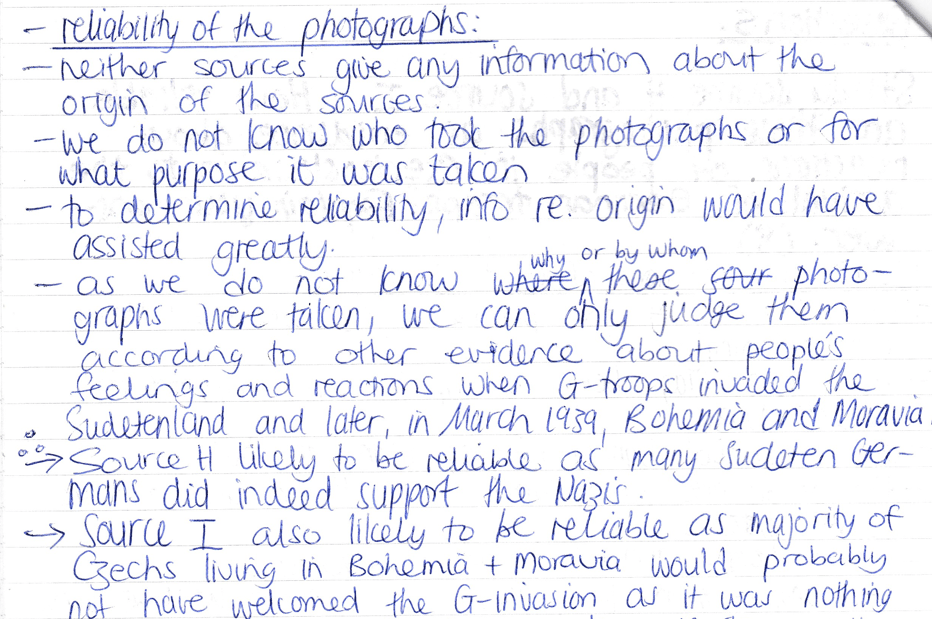 - reliability of the photographs:
- neither sources give any information about the
origin of the sources.
- we do not know who took the photographs or for
what purpose it was taken
- to determine reliability, info re. origin would have
assisted greatly.
why or by whom
- as we do not know where these four photo-
graphs were taken, we can only judge them
according to other evidence about people's
feelings and reactions when G-troops invaded the
Sudetenland and later, in March 1939, Bohemia and Moravia.
∴ → Source H likely to be reliable as many Sudeten Ger-
mans did indeed support the Nazis.
→ Source I also likely to be reliable as majority of
Czechs living in Bohemia + Moravia would probably
not have welcomed the G-invasion as it was nothing